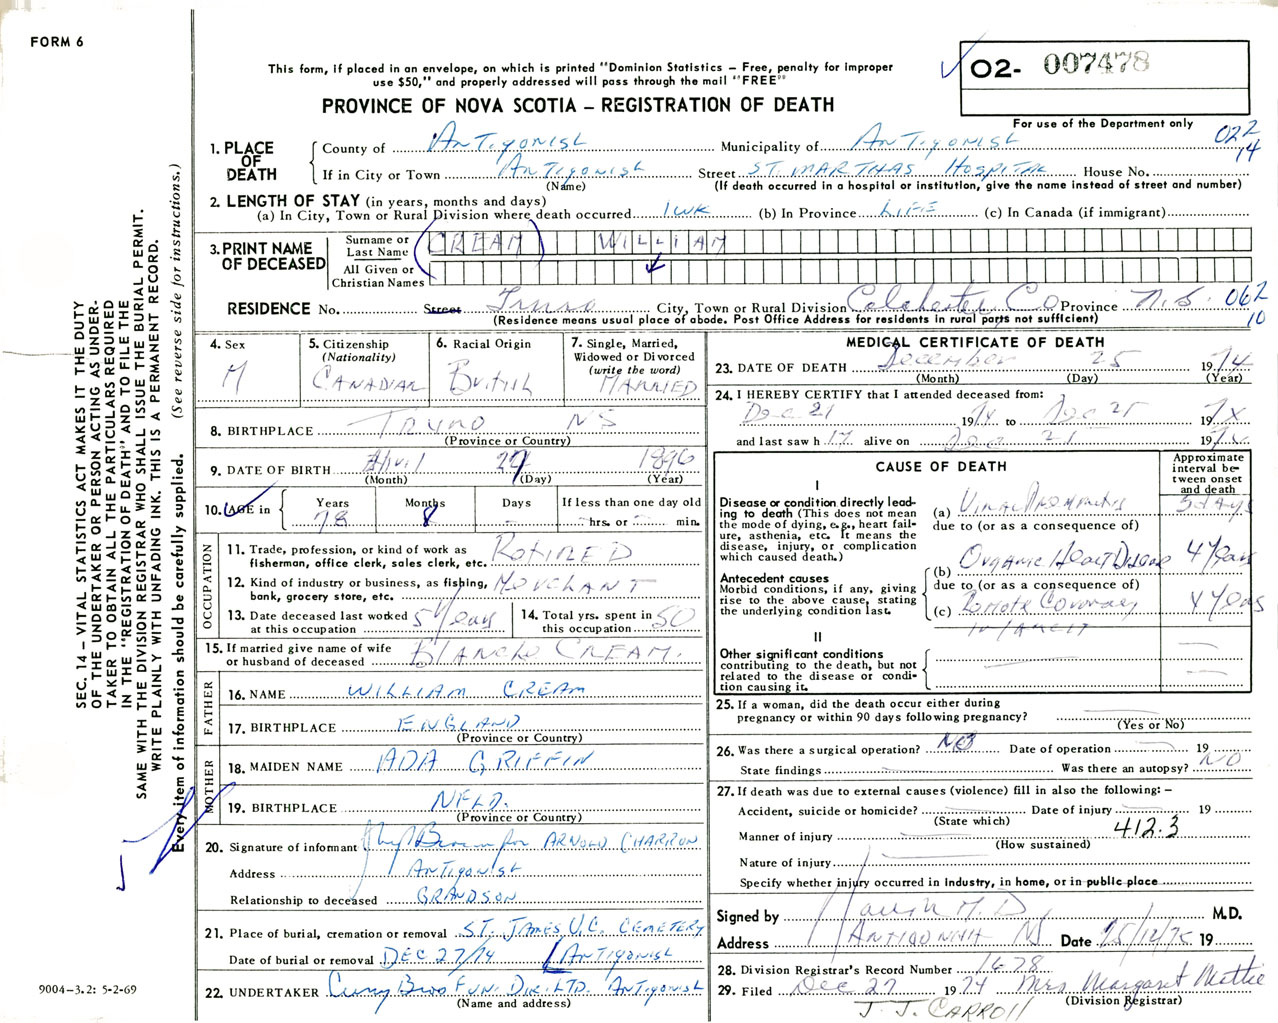 FORM 6
This form, if placed in an envelope, on which is printed "Dominion Statistics – Free, penalty for improper
use $50," and properly addressed will pass through the mail "FREE"
PROVINCE OF NOVA SCOTIA – REGISTRATION OF DEATH
02- 007478
For use of the Department only
022
14
1. PLACE OF DEATH
County of Antigonish Municipality of Antigonish
If in City or Town Antigonish Street ST. MARTHAS HOSPITAL House No.
(Name) (If death occurred in a hospital or institution, give the name instead of street and number)
2. LENGTH OF STAY (in years, months and days)
(a) In City, Town or Rural Division where death occurred 1 WK (b) In Province LIFE (c) In Canada (if immigrant)
3. PRINT NAME OF DECEASED
Surname or Last Name CREAM WILLIAM
All Given or Christian Names
RESIDENCE No. Street Truro City, Town or Rural Division Colchester Co Province N.S. 062
10
(Residence means usual place of abode. Post Office Address for residents in rural parts not sufficient)
4. Sex
M
5. Citizenship
(Nationality)
CANADIAN
6. Racial Origin
British
7. Single, Married,
Widowed or Divorced
(write the word)
MARRIED
8. BIRTHPLACE TRURO NS
(Province or Country)
9. DATE OF BIRTH April 27 1896
(Month) (Day) (Year)
10. AGE in
Years Months Days If less than one day old
78 8 hrs. or min.
OCCUPATION
11. Trade, profession, or kind of work as
fisherman, office clerk, sales clerk, etc. RETIRED
12. Kind of industry or business, as fishing,
bank, grocery store, etc. MERCHANT
13. Date deceased last worked
at this occupation 5 Years
14. Total yrs. spent in
this occupation 50
15. If married give name of wife
or husband of deceased Blanche CREAM.
FATHER
16. NAME WILLIAM CREAM
17. BIRTHPLACE ENGLAND
(Province or Country)
MOTHER
18. MAIDEN NAME ADA GRIFFIN
19. BIRTHPLACE NFLD.
(Province or Country)
20. Signature of informant Brown for ARNOLD CHARRON
Address ANTIGONISH
Relationship to deceased GRANDSON
21. Place of burial, cremation or removal ST. JAMES U.C. CEMETERY
Date of burial or removal DEC 27/74 ANTIGONISH
22. UNDERTAKER Curry Bros FUN. DIR. LTD. ANTIGONISH
(Name and address)
MEDICAL CERTIFICATE OF DEATH
23. DATE OF DEATH December 25 1974
(Month) (Day) (Year)
24. I HEREBY CERTIFY that I attended deceased from:
Dec 21 1974 to Dec 25 19
and last saw h alive on Dec 21 19
CAUSE OF DEATH
Approximate
interval be-
tween onset
and death
I
Disease or condition directly lead-
ing to death (This does not mean
the mode of dying, e.g., heart fail-
ure, asthenia, etc. It means the
disease, injury, or complication
which caused death.)
(a) Viral Pneumonia 5 days
due to (or as a consequence of)
(b) Organic Heart Disease 4 Years
Antecedent causes
Morbid conditions, if any, giving
rise to the above cause, stating
the underlying condition last.
due to (or as a consequence of)
(c) Remote Coronary 4 Years
infarct
II
Other significant conditions
contributing to the death, but not
related to the disease or condi-
tion causing it.
25. If a woman, did the death occur either during
pregnancy or within 90 days following pregnancy?
(Yes or No)
26. Was there a surgical operation? NO Date of operation 19
State findings Was there an autopsy? NO
27. If death was due to external causes (violence) fill in also the following: –
Accident, suicide or homicide? Date of injury 19
(State which) 412.3
Manner of injury
(How sustained)
Nature of injury
Specify whether injury occurred in Industry, in home, or in public place
Signed by M.D. M.D.
Address ANTIGONISH NS Date 25/12/75 19
28. Division Registrar's Record Number 1678
29. Filed Dec 27 1974 Mrs Margaret Mattie
(Division Registrar)
J. J. CARROLL
SEC. 14 – VITAL STATISTICS ACT MAKES IT THE DUTY
OF THE UNDERTAKER OR PERSON ACTING AS UNDER-
TAKER TO OBTAIN ALL THE PARTICULARS REQUIRED
IN THE "REGISTRATION OF DEATH" AND TO FILE THE
SAME WITH THE DIVISION REGISTRAR WHO SHALL ISSUE THE BURIAL PERMIT.
WRITE PLAINLY WITH UNFADING INK. THIS IS A PERMANENT RECORD.
Every item of information should be carefully supplied. (See reverse side for instructions.)
9004–3.2: 5-2-69